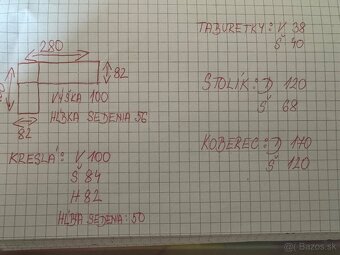 280
82
VÝŠKA 100
HĹBKA SEDENIA 56
82
KRESLÁ: V 100
Š 84
H 82
HĹBKA SEDENIA: 50
TABURETKY: V 38
Š 40
STOLÍK: D 120
Š 68
KOBEREC: D 170
Š 120
Bazos.sk